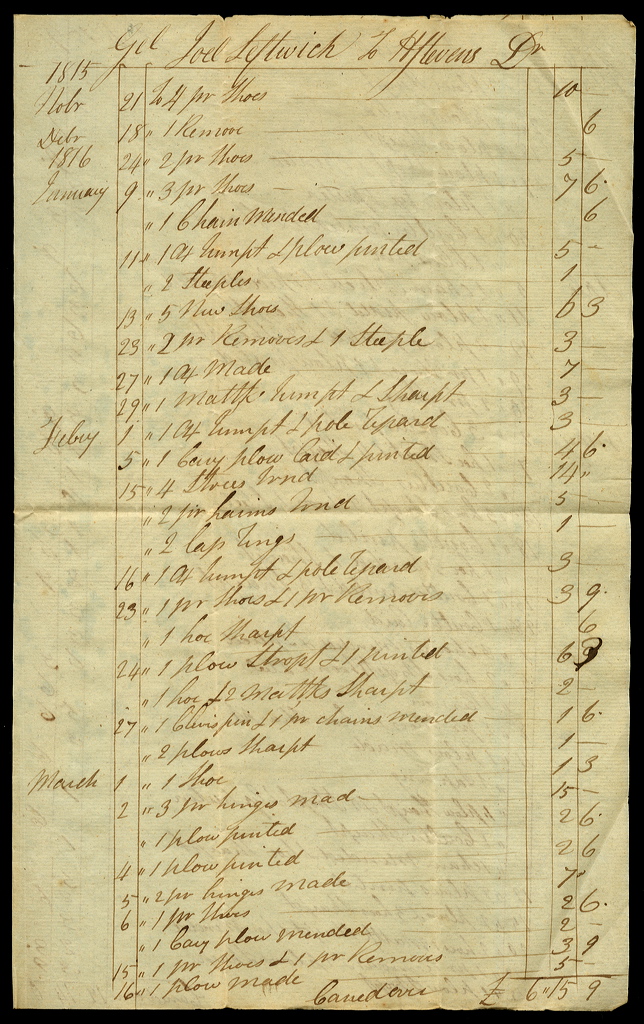 Gel Joel Leftwich To H Stevens Dr
1815
Nobr 21 To 4 pr Shoes 10 —
Debr 18 " 1 Remove 6
1816
24 " 2 pr Shoes 5 —
January 9 " 3 pr Shoes 7 6
" 1 Chain Mended 6
11 " 1 Ax Jumpt & plow pinted 5 —
" 2 Steeples 1
13 " 5 New Shoes 6 3
23 " 2 pr Removes & 1 Steeple 3 —
27 " 1 Ax Made 7
29 " 1 Mattk Jumpt & Sharpt 3 —
Febuy 1 " 1 Ax Jumpt & pole Repard 3
5 " 1 Cary plow Laid & pinted 4 6
15 " 4 14 "
" 2 pr haims 5 —
" 2 Cap Rings 1 —
16 " 1 Ax Jumpt & pole Repard 3 —
23 " 1 pr Shoes & 1 pr Removes 3 9
" 1 hoe Sharpt 6
24 " 1 plow Stropt & 1 pinted 6 3
" 1 hoe & 2 Mattks Sharpt 2 —
27 " 1 Clevis pin & 1 pr chains mended 1 6
" 2 plows Sharpt 1 —
March 1 " 1 Shoe 1 3
2 " 3 pr hinges mad 15 —
" 1 plow pinted 2 6
4 " 1 plow pinted 2 6
5 " 2 pr hinges made 7
6 " 1 pr Shoes 2 6
" 1 Cary plow mended 2 —
15 " 1 pr Shoes & 1 pr Removes 3 9
16 " 1 plow made 5 —
Caried over £ 6 " 15 9